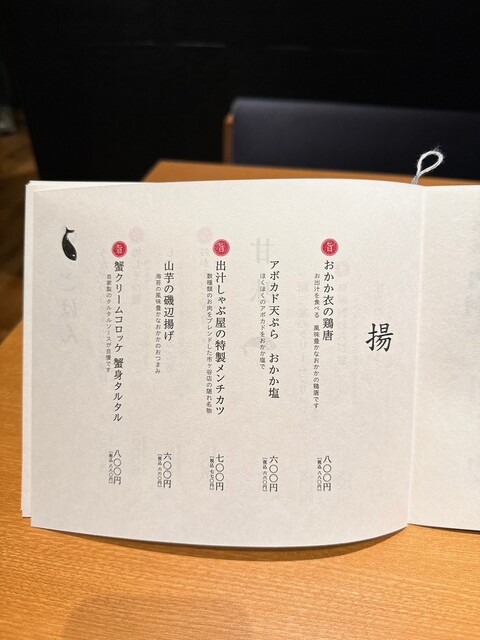 揚
旨
おかか衣の鶏唐
お出汁を食べる 風味豊かなおかかの鶏唐です
八〇〇円
(税込 八八〇円)
アボカド天ぷら おかか塩
ほくほくのアボカドをおかか塩で
六〇〇円
(税込 六六〇円)
旨
出汁しゃぶ屋の特製メンチカツ
数種類のお肉をブレンドした市ヶ谷店の隠れ名物
七〇〇円
(税込 七七〇円)
山芋の磯辺揚げ
海苔の風味豊かなおかかのおつまみ
六〇〇円
(税込 六六〇円)
旨
蟹クリームコロッケ 蟹身タルタル
自家製のタルタルソースが自慢です
八〇〇円
(税込 八八〇円)